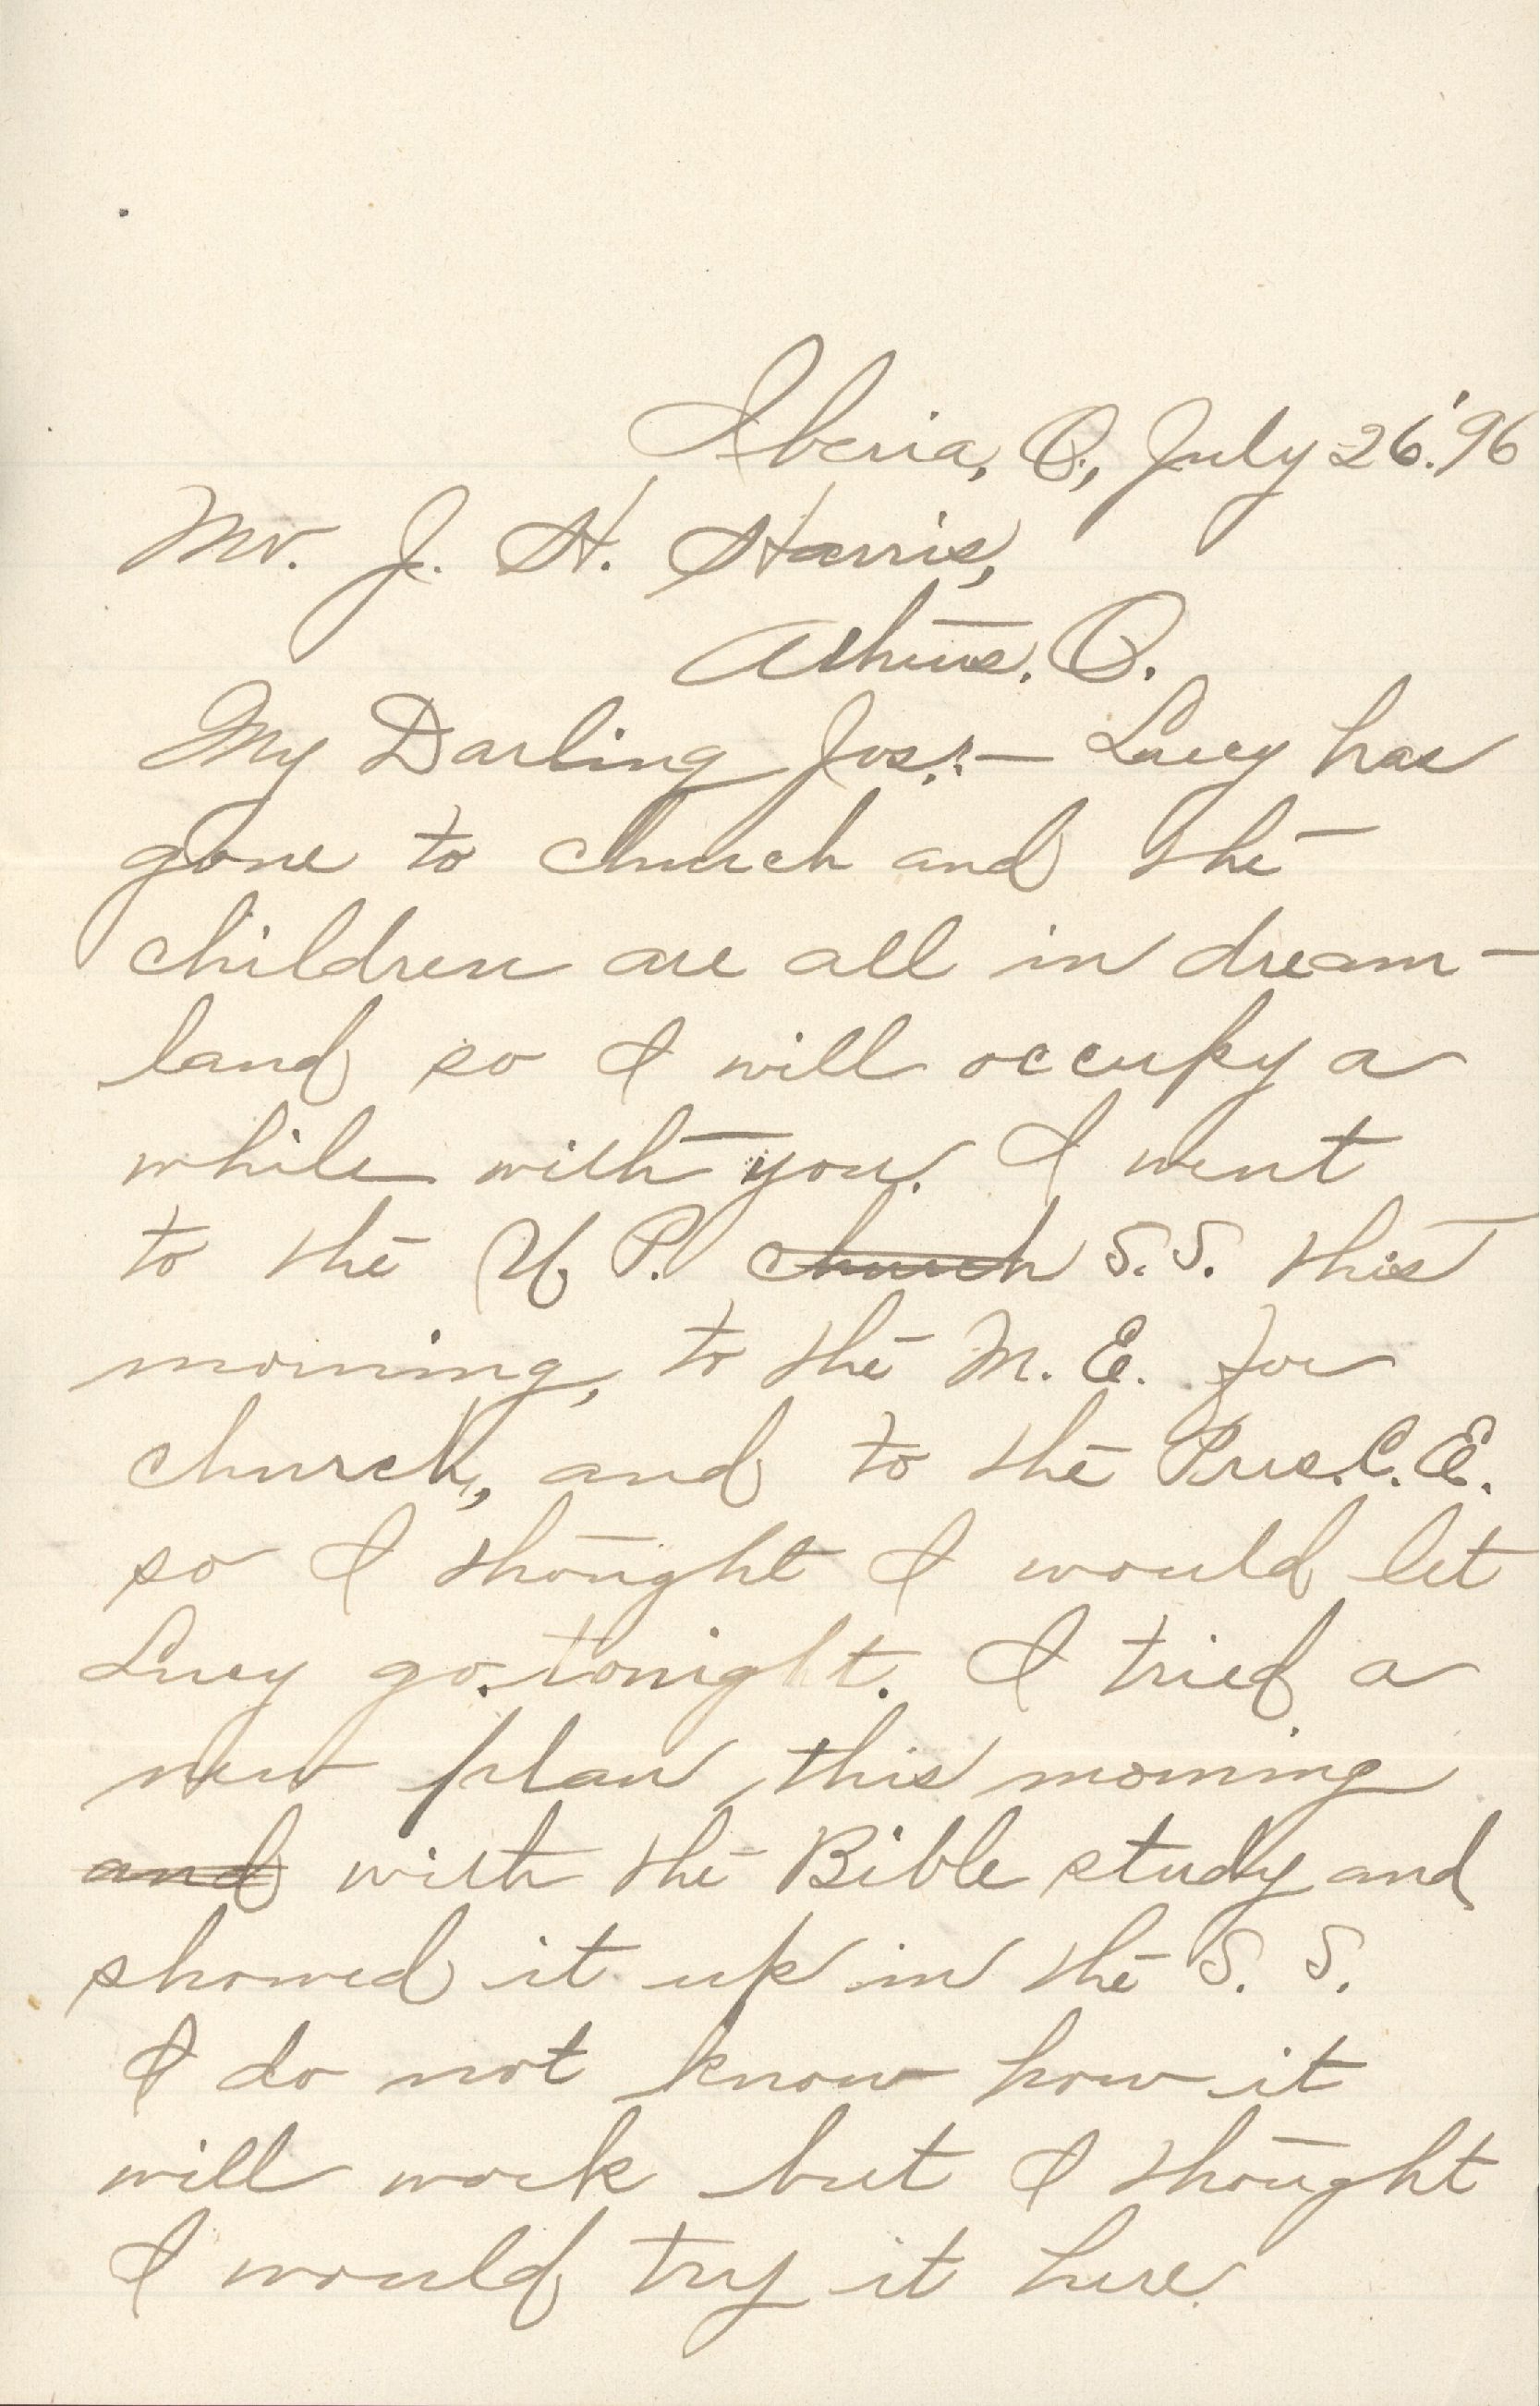 Iberia, O., July 26.'96
Mr. J. H. Harris,
Athens, O.
My Darling Jos.:— Lucy has
gone to church and the
children are all in dream-
land so I will occupy a
while with you. I went
to the U. P. ~~church~~ S.S. this
morning, to the M. E. for
church, and to the Pres. C. E.
so I thought I would let
Lucy go tonight. I tried a
new plan this morning
~~and~~ with the Bible study and
showed it up in the S. S.
I do not know how it
will work but I thought
I would try it here.